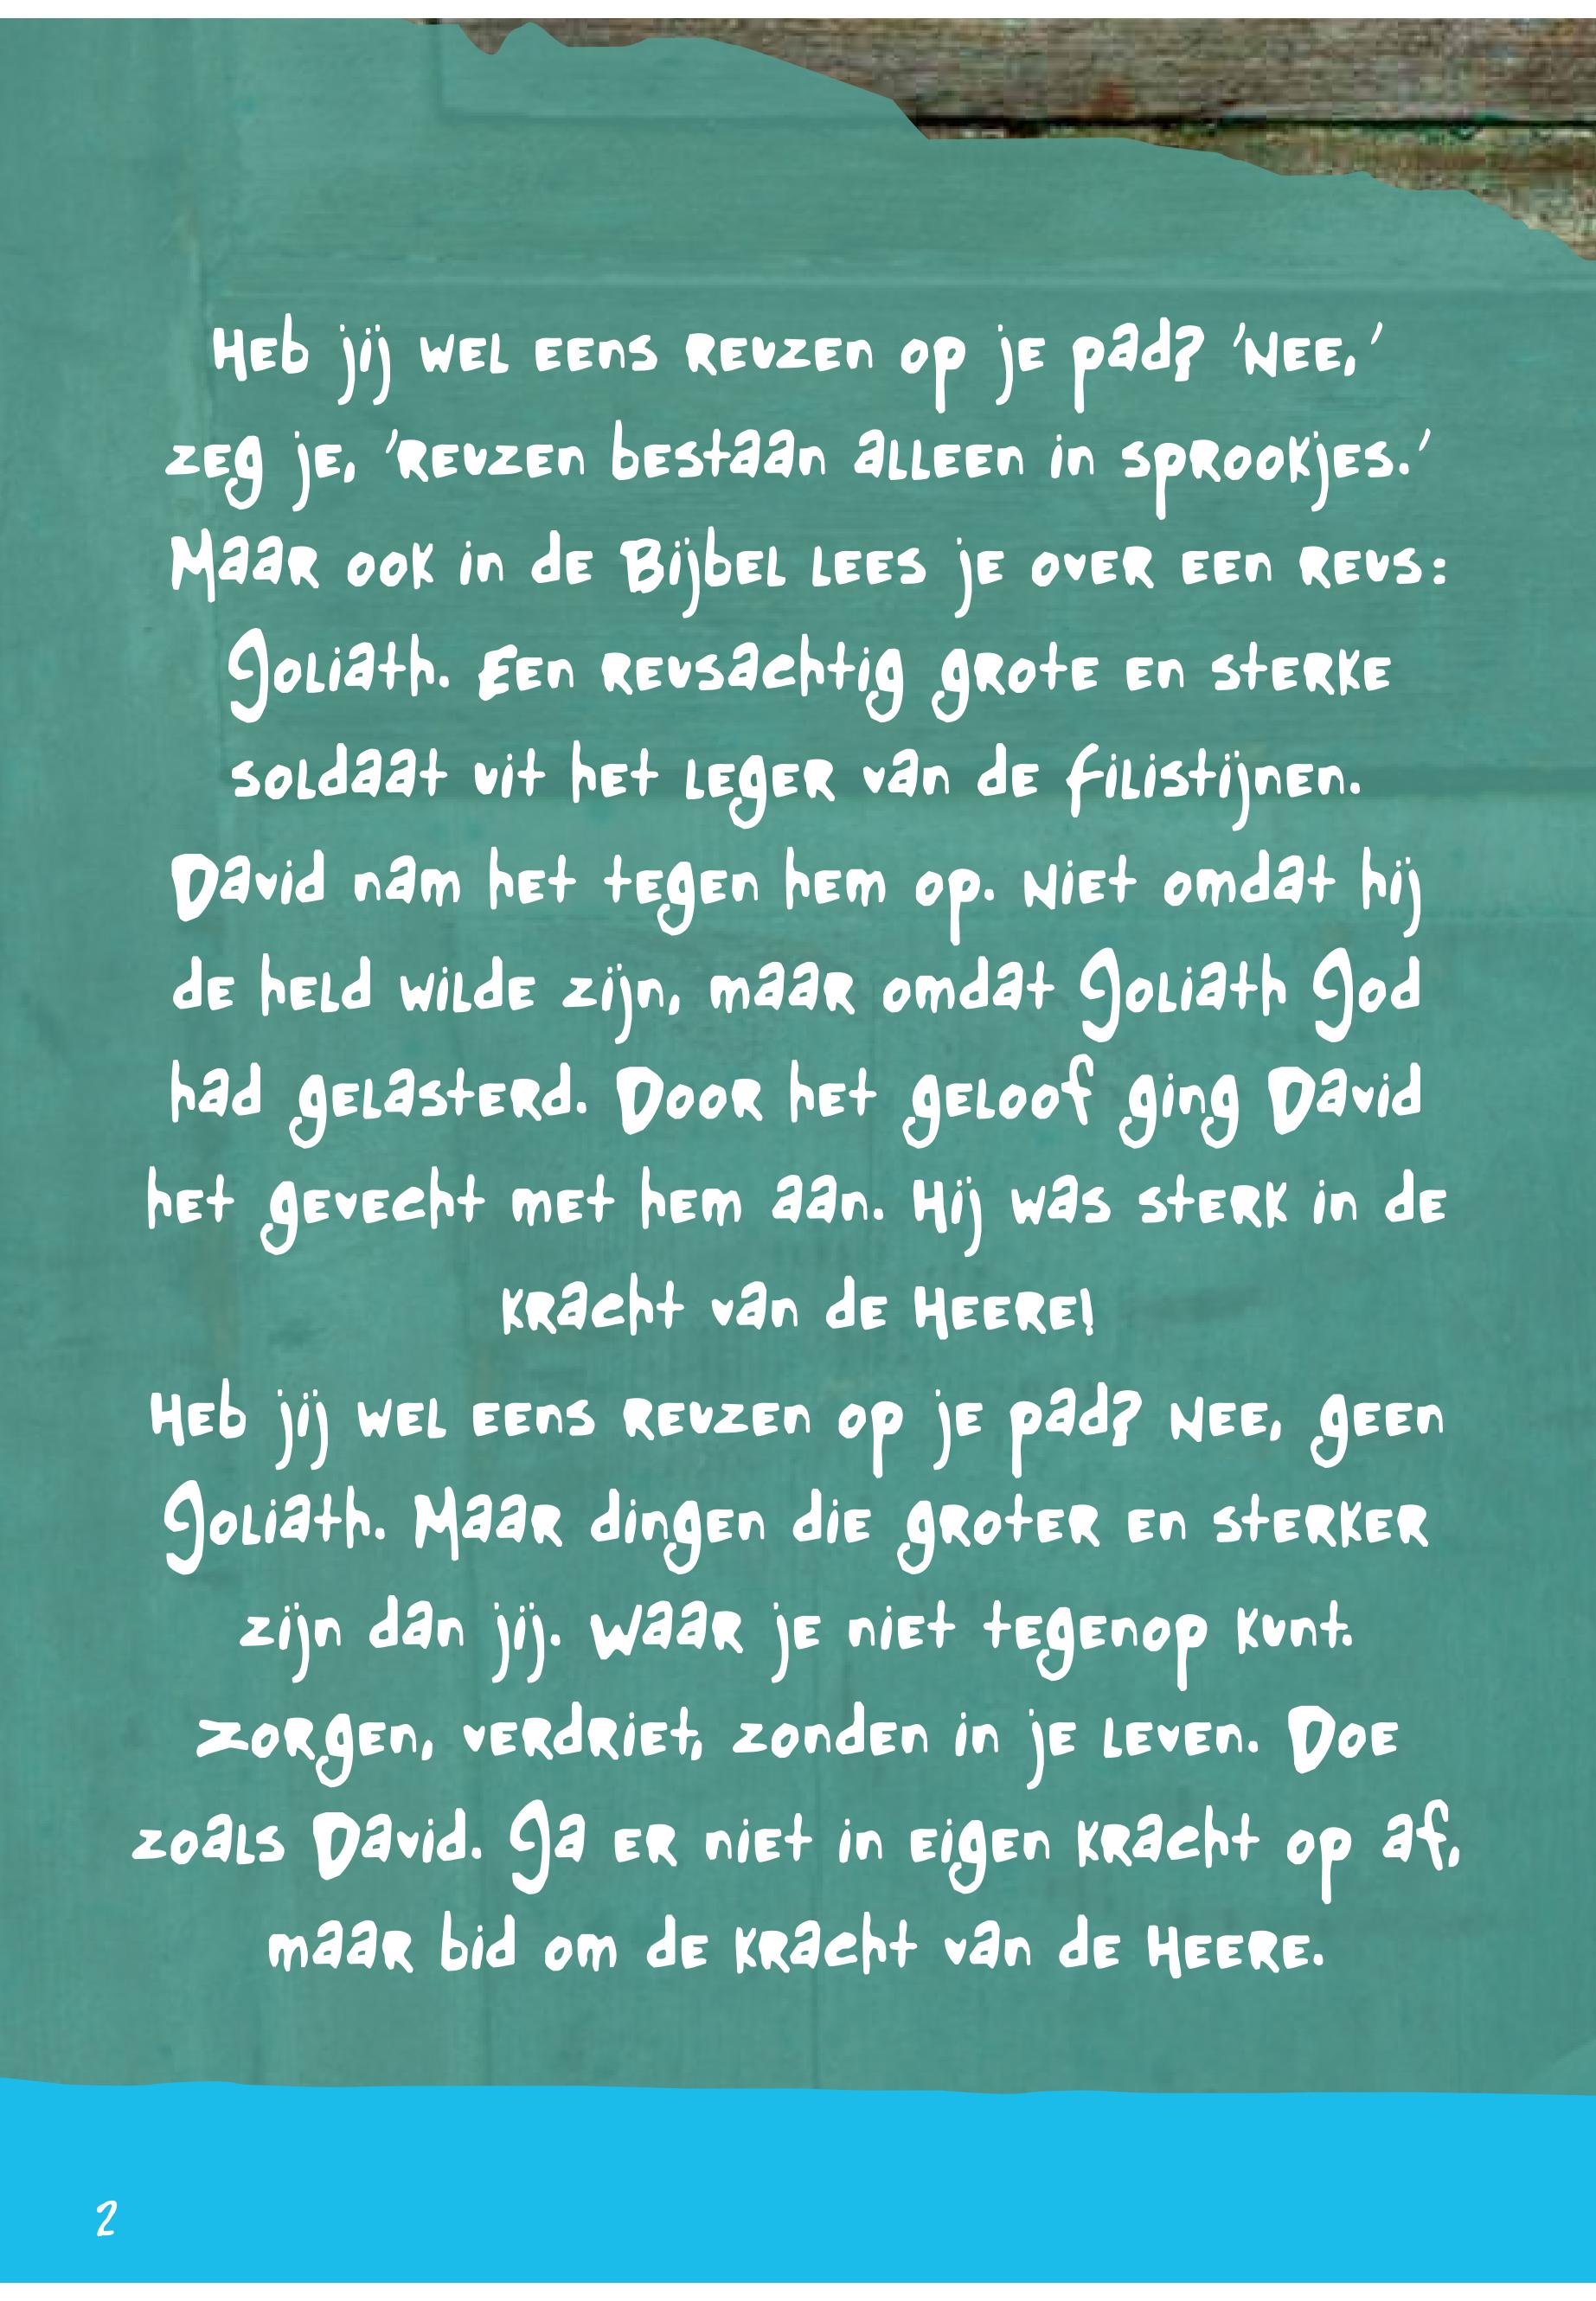 Heb jij wel eens reuzen op je pad? 'Nee,'
zeg je, 'reuzen bestaan alleen in sprookjes.'
Maar ook in de Bijbel lees je over een reus:
Goliath. Een reusachtig grote en sterke
soldaat uit het leger van de Filistijnen.
David nam het tegen hem op. Niet omdat hij
de held wilde zijn, maar omdat Goliath God
had gelasterd. Door het geloof ging David
het gevecht met hem aan. Hij was sterk in de
kracht van de HEERE!
Heb jij wel eens reuzen op je pad? Nee, geen
Goliath. Maar dingen die groter en sterker
zijn dan jij. Waar je niet tegenop kunt.
Zorgen, verdriet, zonden in je leven. Doe
zoals David. Ga er niet in eigen kracht op af,
maar bid om de kracht van de HEERE.
2